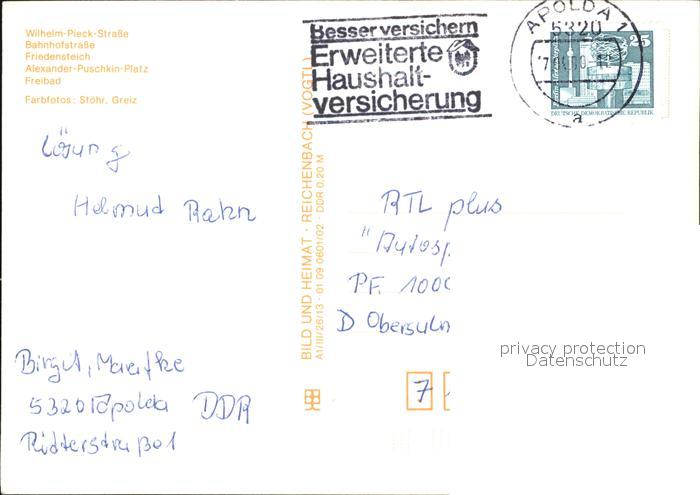 Wilhelm-Pieck-Straße
Bahnhofstraße
Friedensteich
Alexander-Puschkin-Platz
Freibad
Farbfotos: Stöhr, Greiz
Besser versichern
Erweiterte
Haushalt-
versicherung
APOLDA 1
5320
a
25
DEUTSCHE DEMOKRATISCHE REPUBLIK
BILD UND HEIMAT · REICHENBACH (VOGTL)
A1/III/26/13 · 01 09 0601/02 · DDR 0,20 M
Lösung
Helmud Rahn
RTL plus
"Autosp
PF. 1000
D Obersulm
7
Birgit, Mareike
5320 Apolda DDR
Ritterstraße 1
privacy protection
Datenschutz